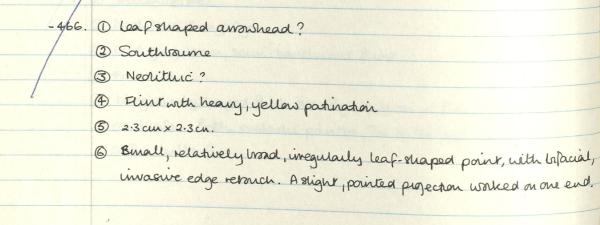 -466. ① Leaf shaped arrowhead?
② Southbourne
③ Neolithic?
④ Flint with heavy, yellow patination
⑤ 2.3cm x 2.3cm.
⑥ Small, relatively broad, irregularly leaf-shaped point, with bifacial,
invasive edge retouch. A slight, pointed projection worked on one end.